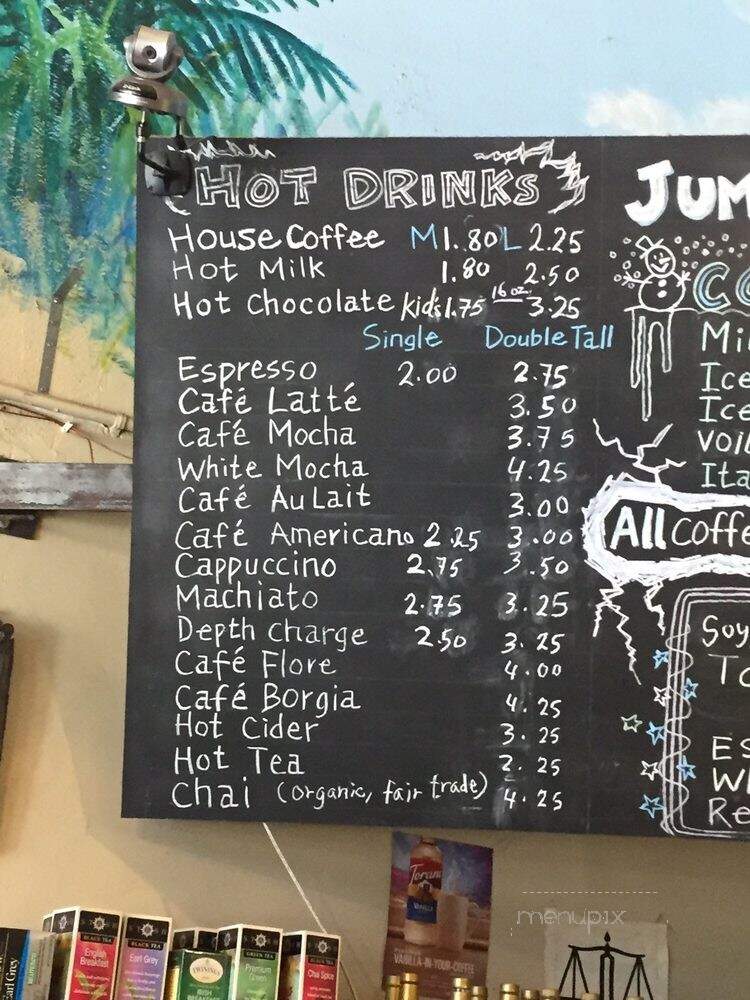 HOT DRINKS
House Coffee M 1.80 L 2.25
Hot Milk 1.80 2.50
Hot Chocolate kid's 1.75 16 oz. 3.25
Single Double Tall
Espresso 2.00 2.75
Café Latté 3.50
Café Mocha 3.75
White Mocha 4.25
Café Au Lait 3.00
Café Americano 2.25 3.00
Cappuccino 2.75 3.50
Machiato 2.75 3.25
Depth Charge 2.50 3.25
Café Flore 4.00
Café Borgia 4.25
Hot Cider 3.25
Hot Tea 2.25
Chai (organic, fair trade) 4.25
JUM
CO
Mil
Ice
Ice
Ita
All Coffe
Soy
To
ES
Re
Torani
VANILLA
VANILLA-IN-YOUR-COFFEE
menupix
Earl Grey
BLACK TEA
English Breakfast
BLACK TEA
Earl Grey
TWININGS
IRISH BREAKFAST
GREEN TEA
Premium Green
BLACK TEA
Chai Spice